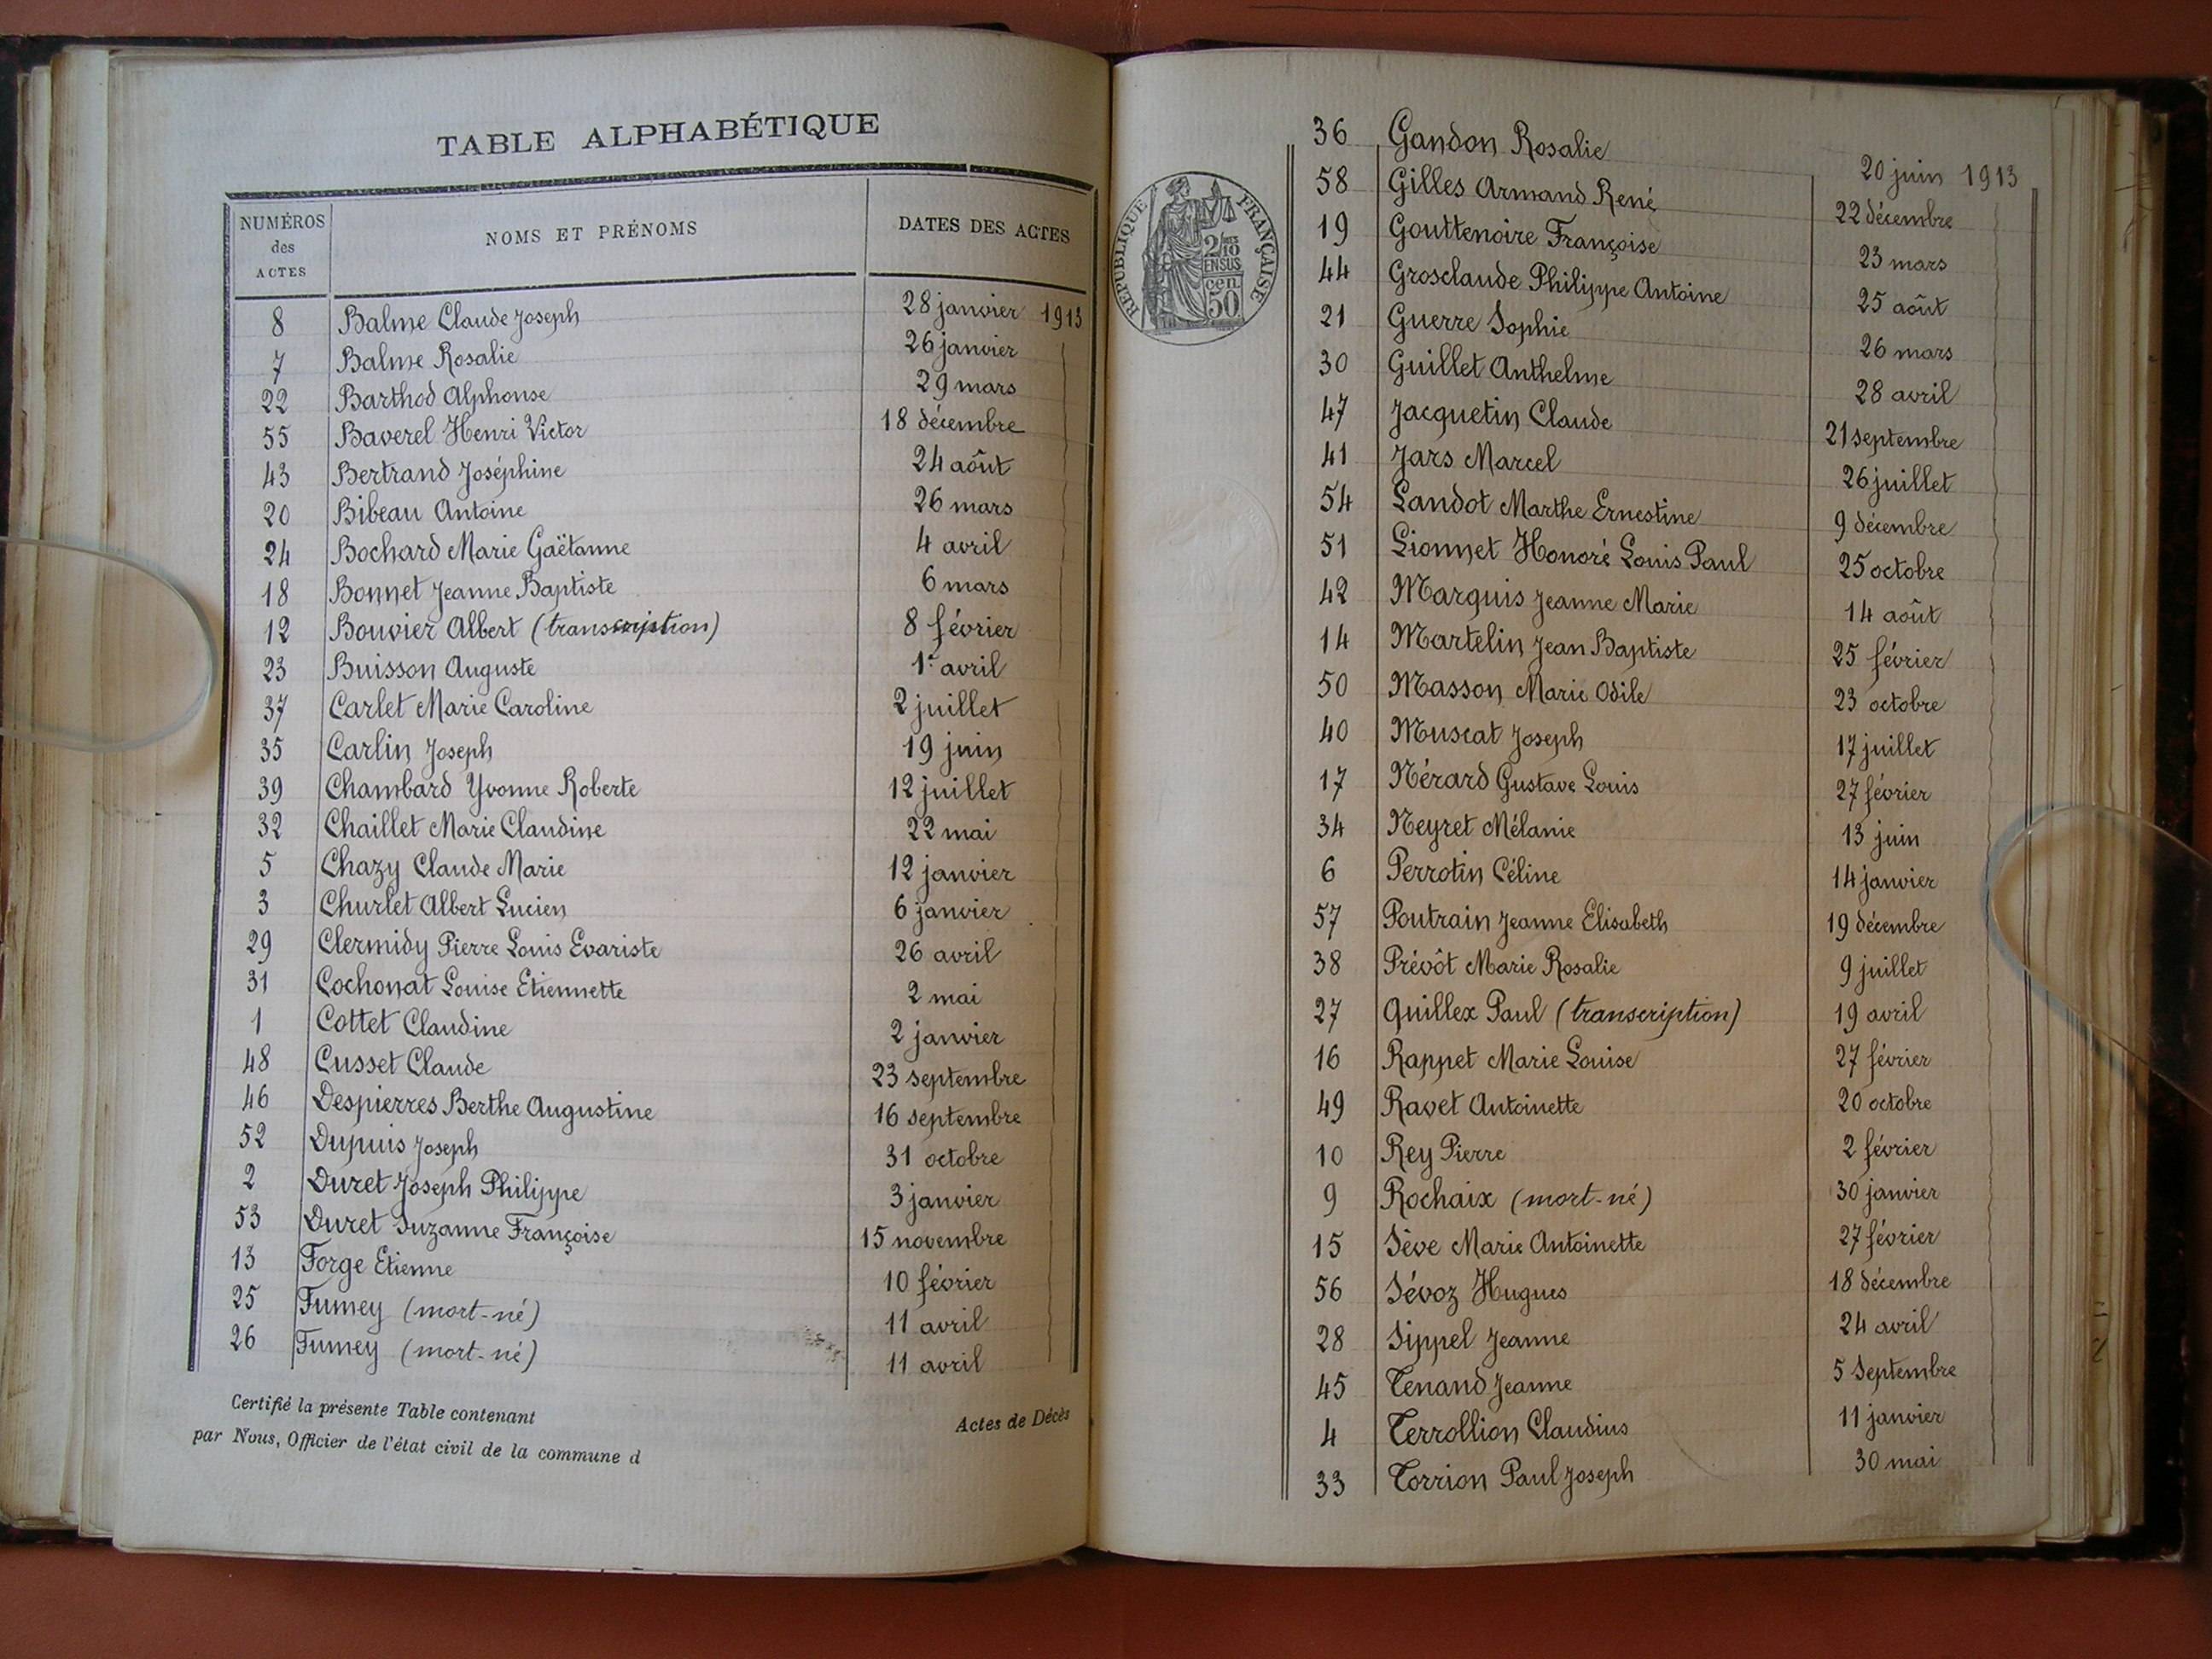 TABLE ALPHABÉTIQUE
NUMÉROS des ACTES NOMS ET PRÉNOMS DATES DES ACTES
8 Balme Claude Joseph 28 janvier 1913
7 Balme Rosalie 26 janvier
22 Barthod Alphonse 29 mars
55 Baverel Henri Victor 18 décembre
43 Bertrand Joséphine 24 août
20 Bibeau Antoine 26 mars
24 Bochard Marie Gaëtanne 4 avril
18 Bonnet Jeanne Baptiste 6 mars
12 Bouvier Albert (transcription) 8 février
23 Buisson Auguste 1r avril
37 Carlet Marie Caroline 2 juillet
35 Carlin Joseph 19 juin
39 Chambard Yvonne Roberte 12 juillet
32 Chaillet Marie Claudine 22 mai
5 Chazy Claude Marie 12 janvier
3 Churlet Albert Lucien 6 janvier
29 Clermidy Pierre Louis Evariste 26 avril
31 Cochonat Louise Etiennette 2 mai
1 Cottet Claudine 2 janvier
48 Cusset Claude 23 septembre
46 Despierres Berthe Augustine 16 septembre
52 Dupuis Joseph 31 octobre
2 Duret Joseph Philippe 3 janvier
53 Duret Suzanne Françoise 15 novembre
13 Forge Etienne 10 février
25 Fumey (mort-né) 11 avril
26 Fumey (mort-né) 11 avril
Certifié la présente Table contenant Actes de Décès
par Nous, Officier de l'état civil de la commune d
RÉPUBLIQUE FRANÇAISE
2/10
EN SUS
cen.
50
36 Gandon Rosalie 20 juin 1913
58 Gilles Armand René 22 décembre
19 Gouttenoire Françoise 23 mars
44 Grosclaude Philippe Antoine 25 août
21 Guerre Sophie 26 mars
30 Guillet Anthelme 28 avril
47 Jacquetin Claude 21 septembre
41 Jars Marcel 26 juillet
54 Landot Marthe Ernestine 9 décembre
51 Lionnet Honoré Louis Paul 25 octobre
42 Marquis Jeanne Marie 14 août
14 Martelin Jean Baptiste 25 février
50 Masson Marie Odile 23 octobre
40 Muscat Joseph 17 juillet
17 Nérard Gustave Louis 27 février
34 Neyret Mélanie 13 juin
6 Perrotin Céline 14 janvier
57 Poutrain Jeanne Elisabeth 19 décembre
38 Prévôt Marie Rosalie 9 juillet
27 Quillex Paul (transcription) 19 avril
16 Rappet Marie Louise 27 février
49 Ravet Antoinette 20 octobre
10 Rey Pierre 2 février
9 Rochaix (mort-né) 30 janvier
15 Sève Marie Antoinette 27 février
56 Sévoz Hugues 18 décembre
28 Sippel Jeanne 24 avril
45 Tenand Jeanne 5 Septembre
4 Terrollion Claudius 11 janvier
33 Torrion Paul Joseph 30 mai